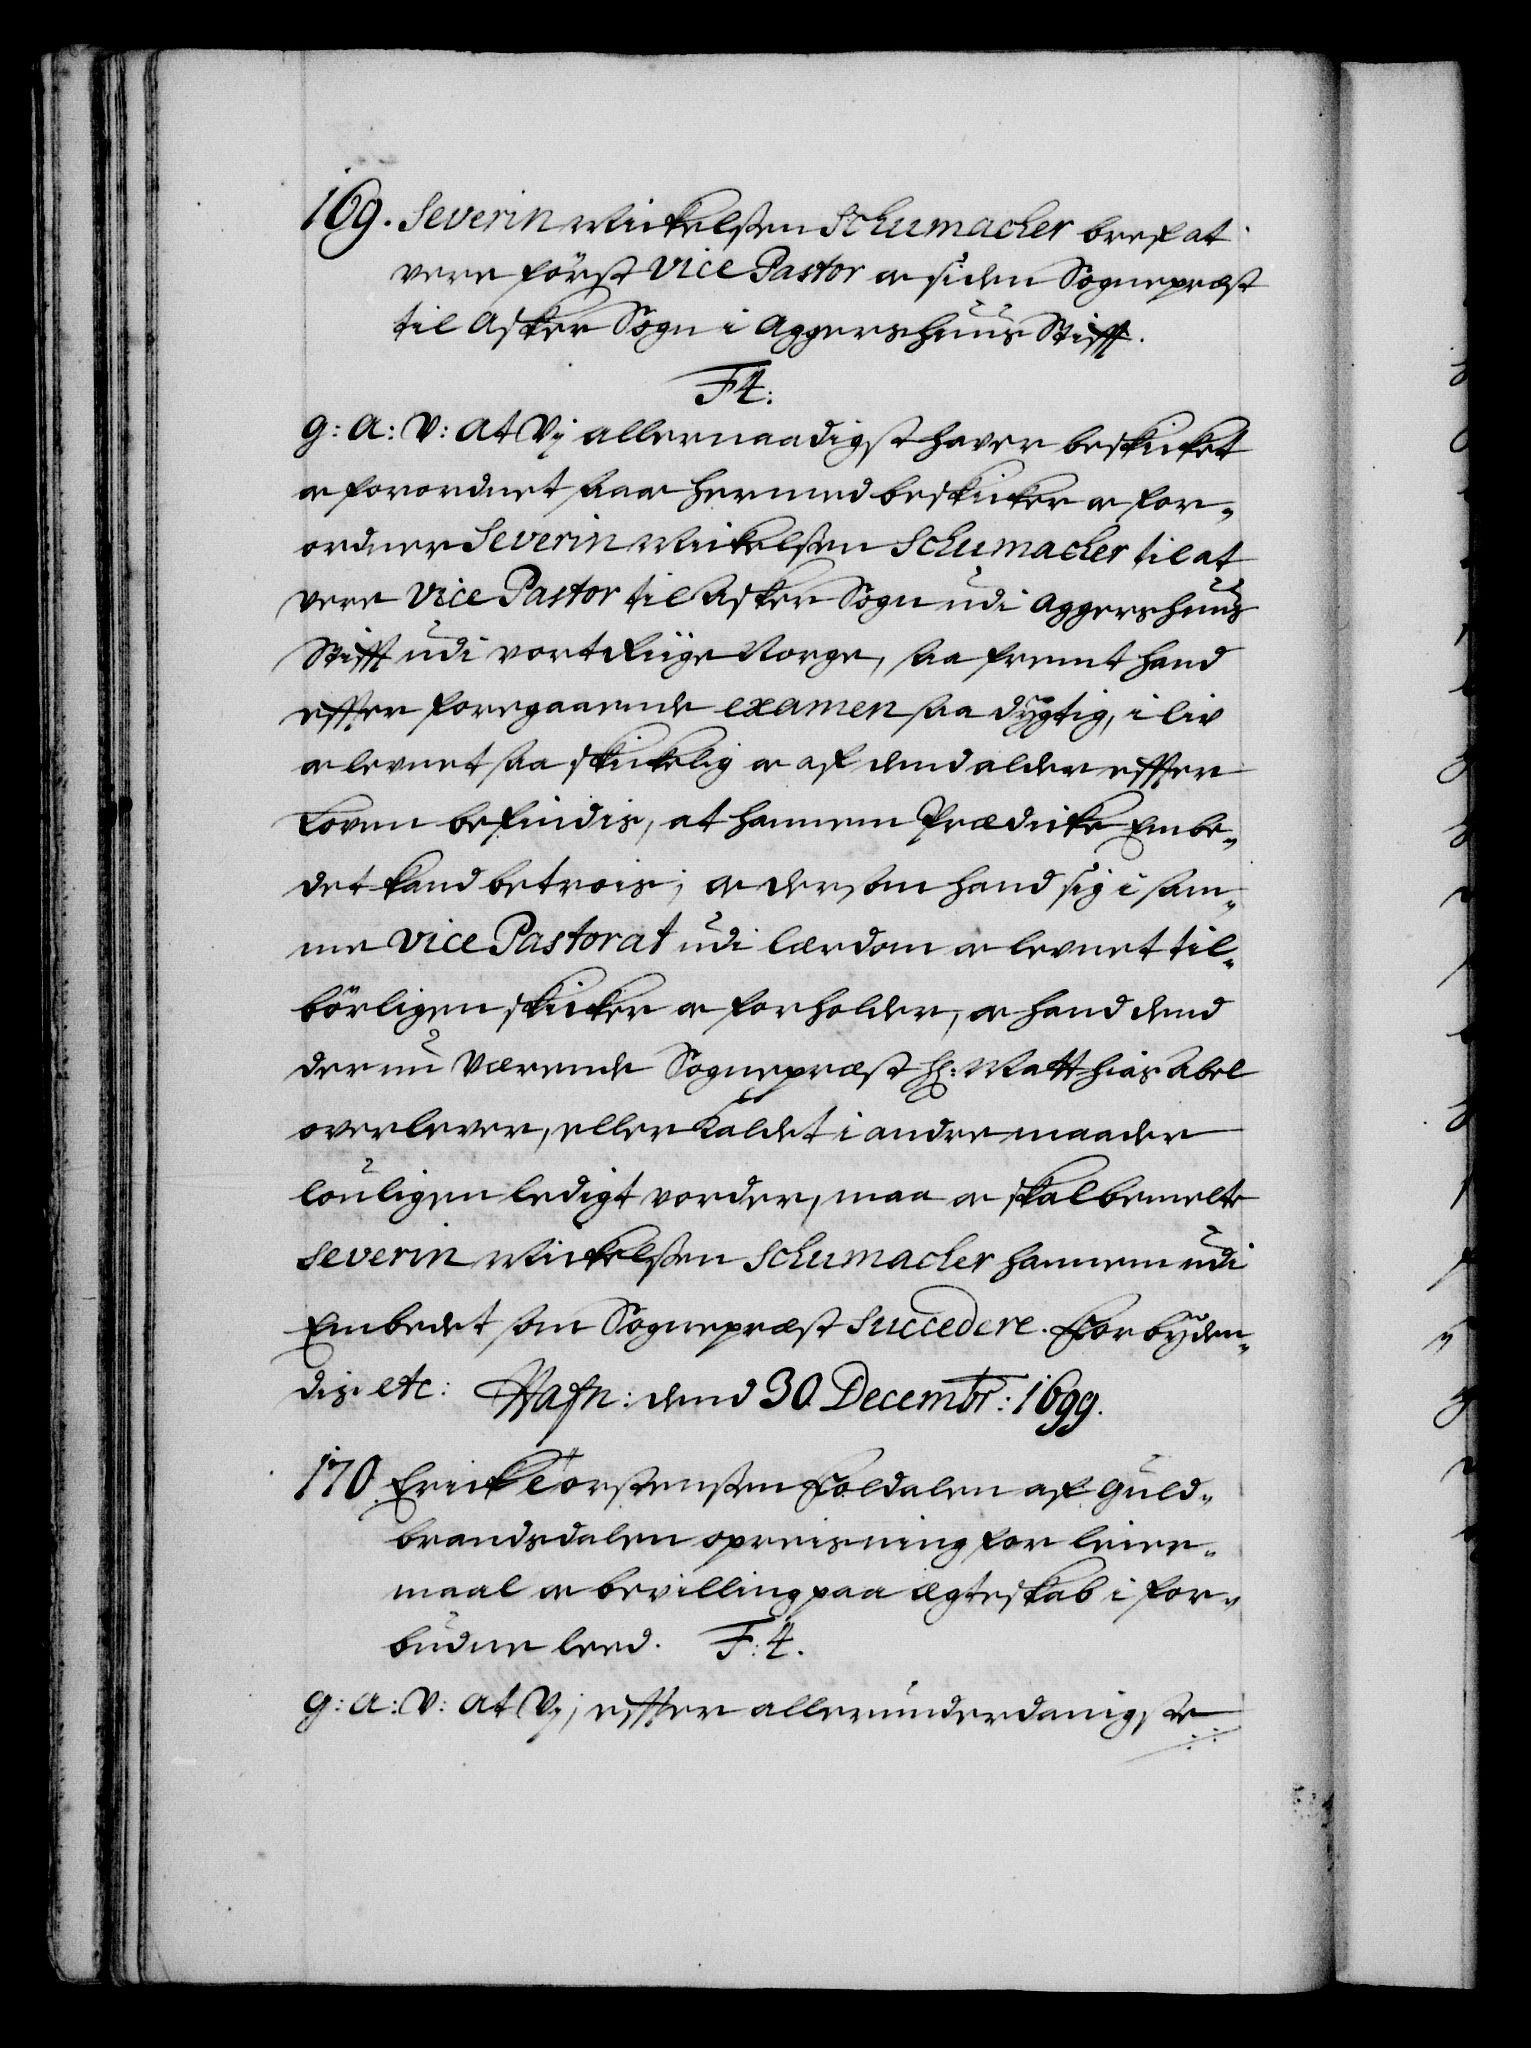 169. Severin Mickelßen Schumacher bref at
vere först Vice Pastor oc siden Sognepræst
til Asker Sogn i Aggershuus Stifft.
F4:
G: A: V: At Vi allernaadigst haver beskicket
oc forordnet saa oc hermed beskicker oc for-
ordner Severin Mickelßen Schumacher til at
vere Vice Pastor til Asker Sogn udi Aggershuus
Stifft udi vort Riige Norge, saa fremt hand
effter foregaaende examen saa dygtig, i liv
oc levnet saa skickelig oc af dend alder effter
Loven befindis, at hannem Prædicke Embe-
det kand betrois; oc dersom hand sig i sam-
me Vice Pastorat udi lærdom oc levnet til-
börligen skicker oc forholder, oc hand dend
der nu Værende Sognepræst Hr: Matthias Abel
overlever, eller Kaldet i andre maader
louligen ledigt vorder, maa oc skal bemelte
Severin Mickelßen Schumacher hannem udi
Embedet som Sognepræst succedere. Forbyden-
dis etc: Hafn: dend 30 Decembr: 1699.
170 Erick Torstensßen Foldalen af Guld-
brandsdalen opreisning for leier-
maal oc bevilling paa ægteskab i for-
budne leed. F: 4.
G: A: V: At Vj, effter allerunderdanigste